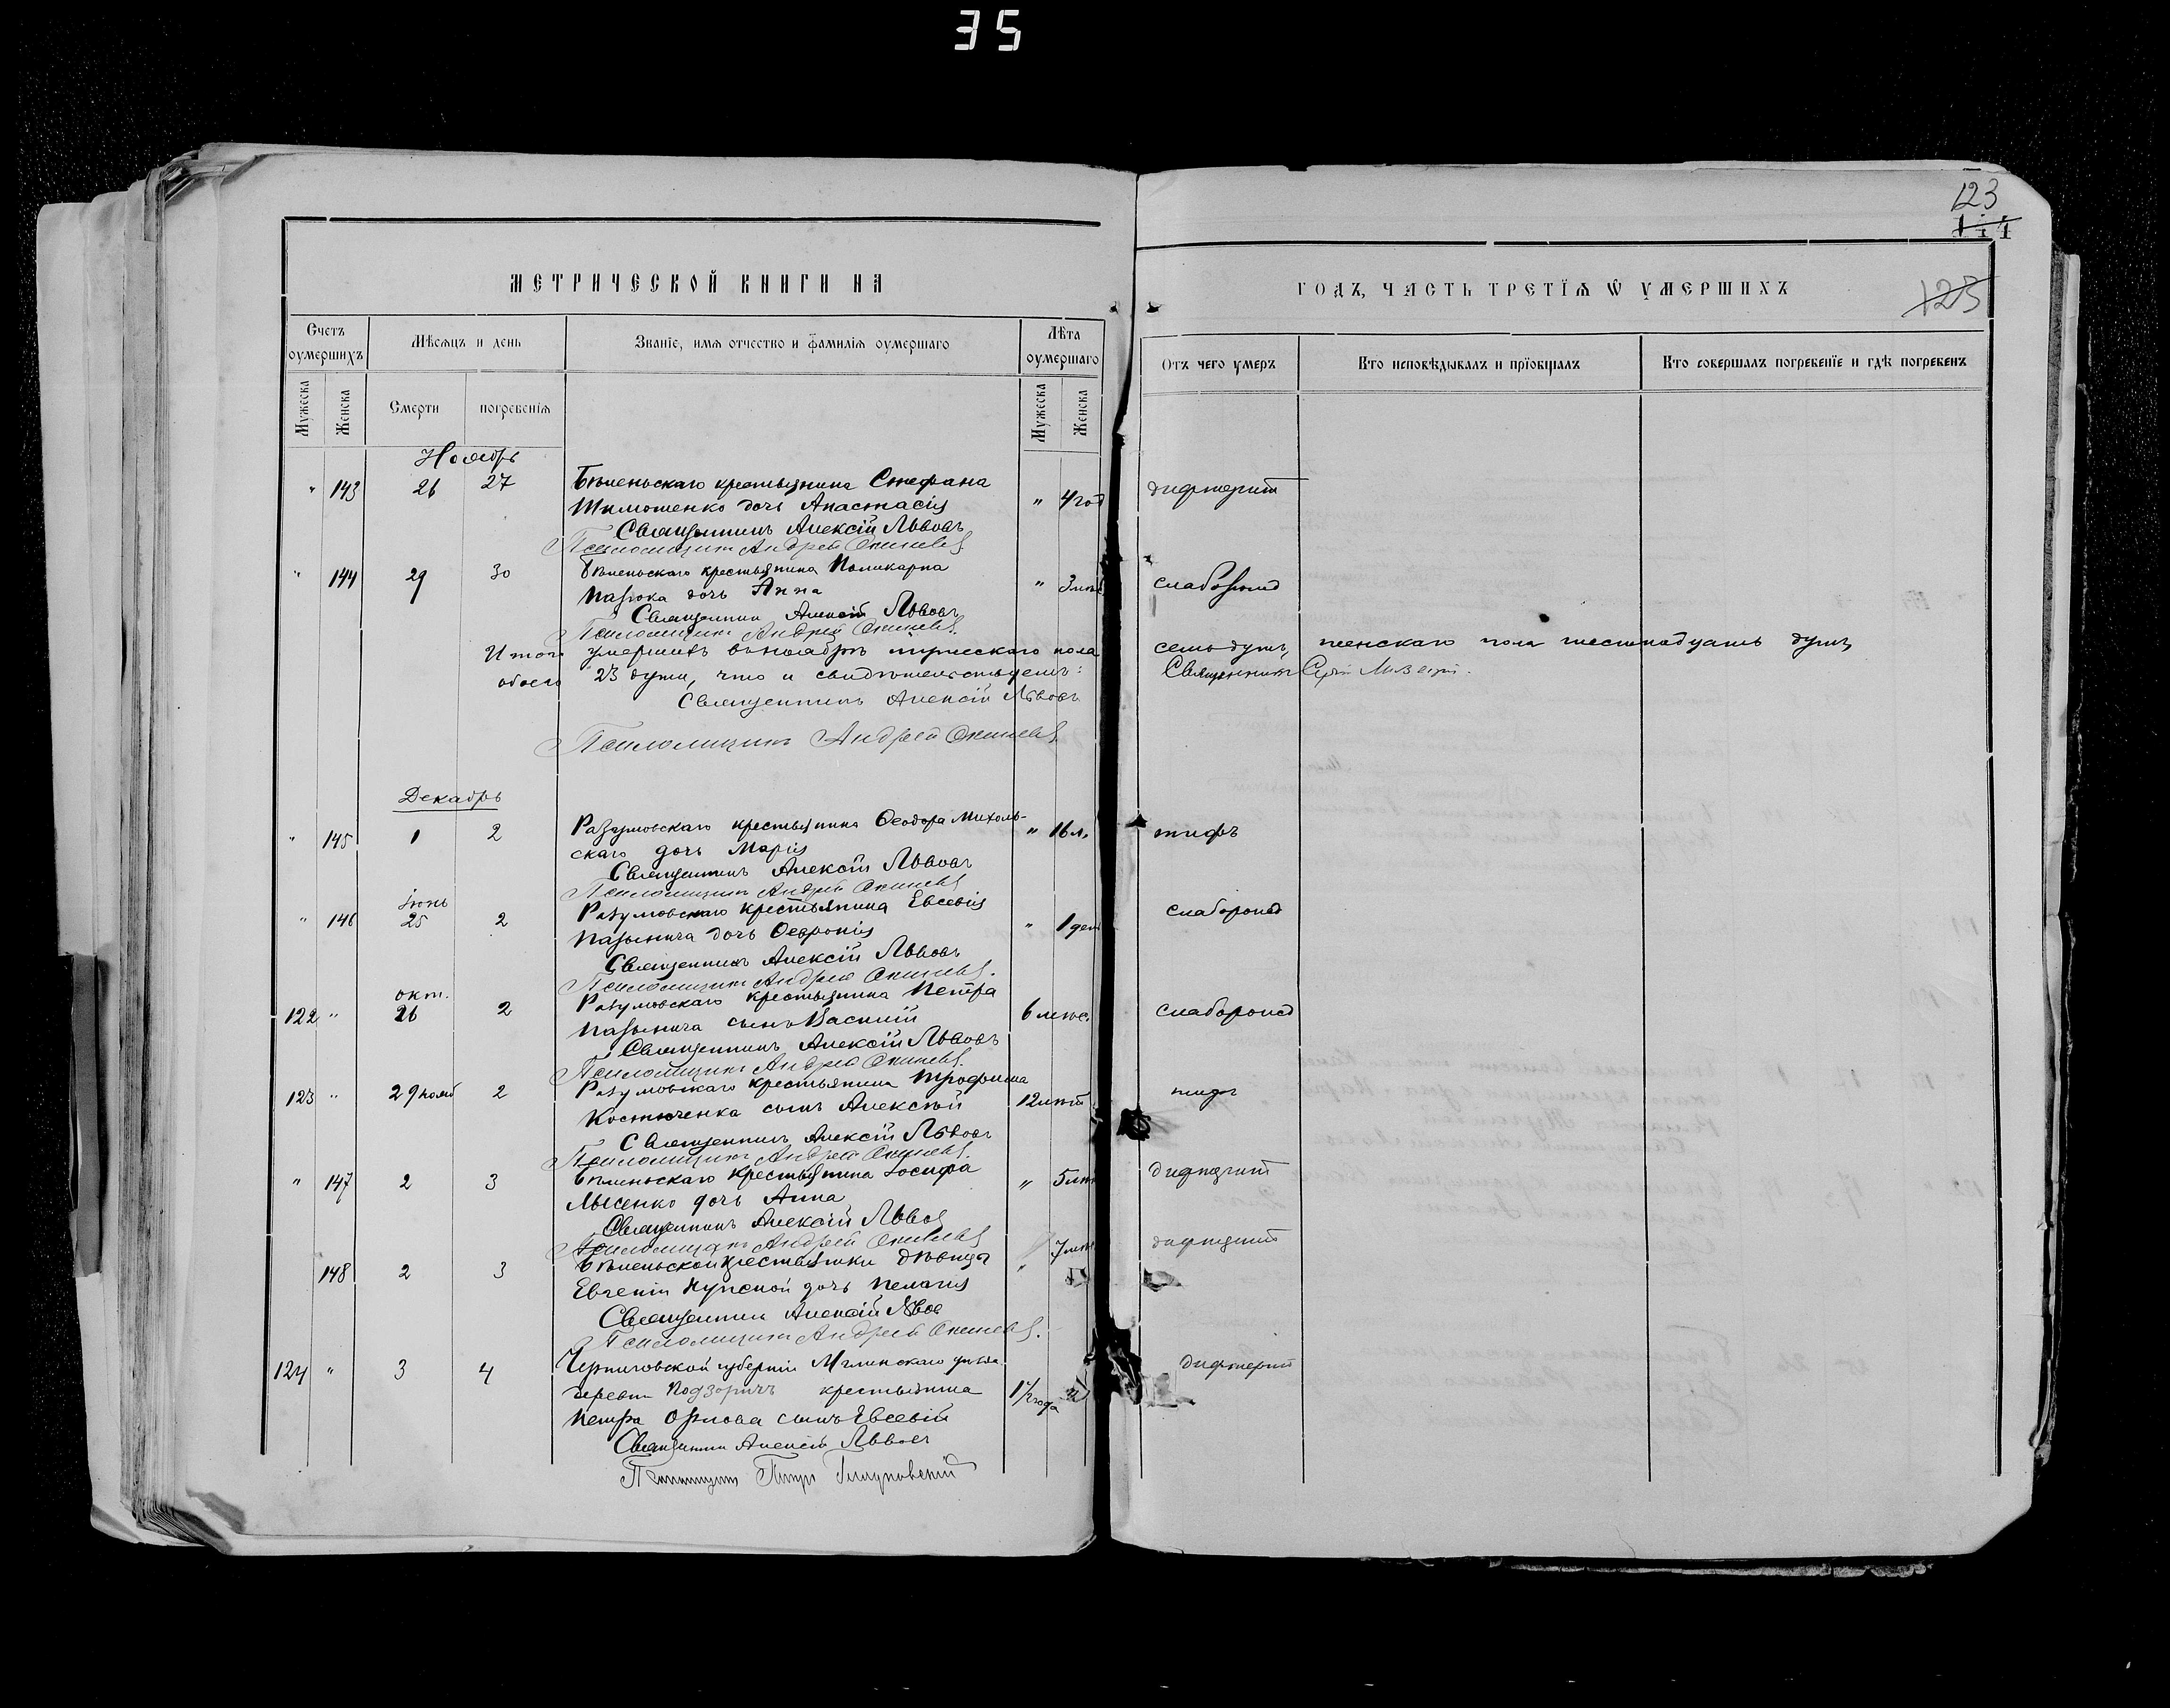 35
123
111
123
МЕТРИЧЕСКОЙ КНИГИ НА
ГОДЪ, ЧАСТЬ ТРЕТІѦ Ѿ УМЕРШИХЪ
Счетъ оумершихъ
Мѣсяцъ и день
Званіе, имя отчество и фамилія оумершаго
Лѣта оумершаго
Отъ чего умеръ
Кто исповѣдывалъ и пріобщалъ
Кто совершалъ погребеніе и гдѣ погребенъ
Мужеска
Женска
Смерти
погребенія
Мужеска
Женска
Ноябрь
" 143 26 27 Бѣленьскаго крестьянина Стефана " 4 год дифтерит
Тимошенко дочь Анастасія
Священникъ Алексій Львовъ
Псаломщикъ Андрей
" 144 29 30 Бѣленьскаго крестьянина Поликарпа " 3 слаборожд
дочь Анна
Священникъ Алексій Львовъ
Псаломщикъ Андрей
Итого умершихъ въ ноябрѣ мужескаго пола семь душъ, женскаго пола шестнадцать душъ
обоего 23 души, что и свидѣтельствуемъ:
Священникъ
Священникъ Алексій Львовъ
Псаломщикъ Андрей
Декабрь
" 145 1 2 Разумовскаго крестьянина Ѳеодора Михаль- " 16 л. тифъ
скаго дочь Марія
Священникъ Алексій Львовъ
Псаломщикъ Андрей
Іюнь
" 146 25 2 Разумовскаго крестьянина Евсевія " 1 день слаборожд
дочь Ѳевронія
Священникъ Алексій Львовъ
Псаломщикъ Андрей
окт.
122 " 26 2 Разумовскаго крестьянина Петра 6 мѣс. слаборожд
сынъ Василій
Священникъ Алексій Львовъ
Псаломщикъ Андрей
123 " 29 нояб 2 Разумовскаго крестьянина Трофима 12 лѣт тифъ
Костюченка сынъ Алексѣй
Священникъ Алексій Львовъ
Псаломщикъ Андрей
" 147 2 3 Бѣленьскаго крестьянина Іосифа " 5 лѣт дифтерит
Лысенко дочь Анна
Священникъ Алексій Львов
Псаломщикъ Андрей
148 2 3 Бѣленьской крестьянки дѣвицы " 7 дифтерит
Евгеніи дочь Пелагія
Священникъ Алексій Львов
Псаломщикъ Андрей
124 " 3 4 Черниговской губерніи Мглинскаго уѣзда 1 1/2 года дифтерит
деревни крестьянина
Петра Орлова сынъ Евсевій
Священникъ Алексій Львовъ
Псаломщикъ Петръ